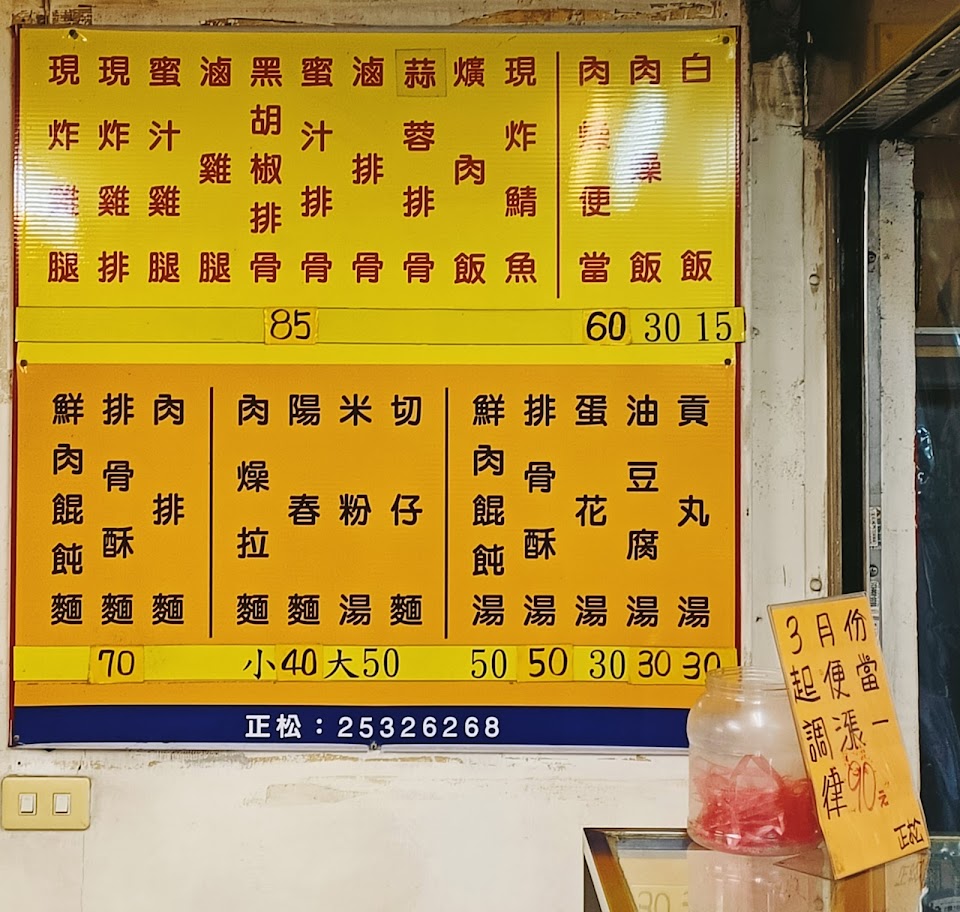 現炸雞腿
現炸雞排
蜜汁雞腿
滷雞腿
黑胡椒排骨
蜜汁排骨
滷排骨
蒜蓉排骨
爌肉飯
現炸鯖魚
肉燥便當
肉燥飯
白飯
85 60 30 15
鮮肉餛飩麵
排骨酥麵
肉排麵
肉燥拉麵
陽春麵
米粉湯
切仔麵
鮮肉餛飩湯
排骨酥湯
蛋花湯
油豆腐湯
貢丸湯
70 小40大50 50 50 30 30 30
正松：25326268
3月份
起便當
調漲一
律90元
正松